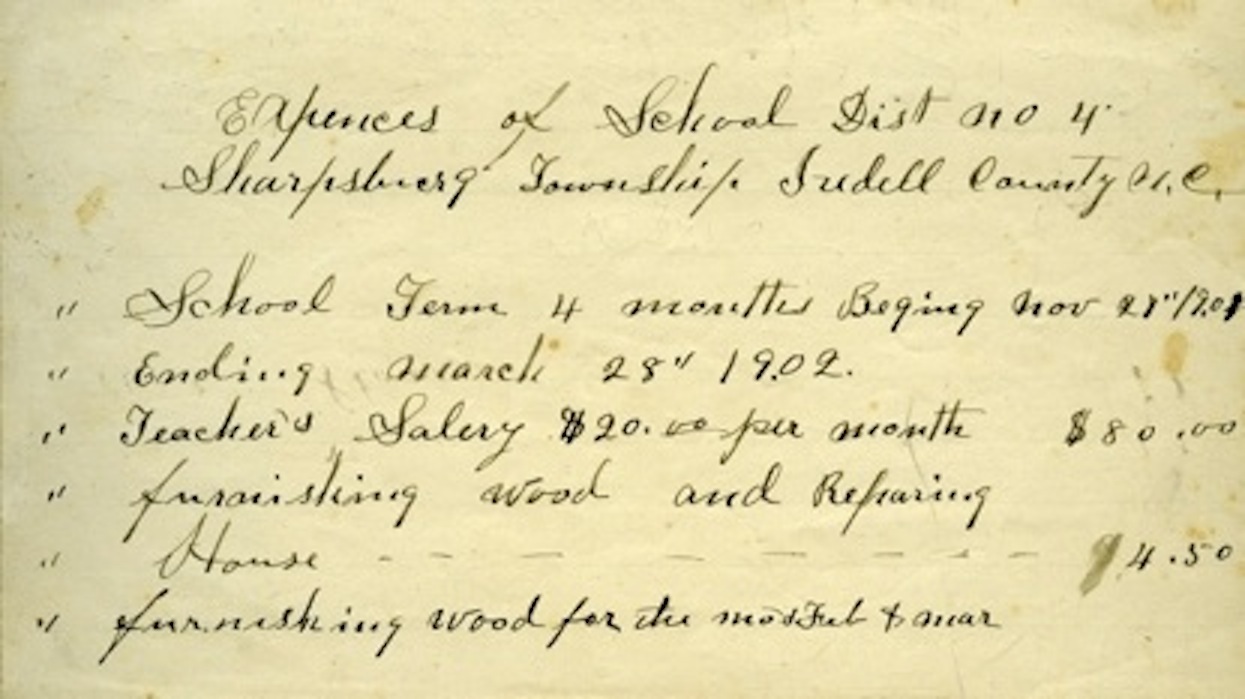 Expences of School Dist no 4
Sharpsburg Township Iredell County N.C.
" School Term 4 months Beging Nov
" Ending march 28" 1902.
" Teacher's Salery $20.00 per month $80.00
" furnishing wood and Reparing
" House - - - - - - - - - $4.50
" furnishing wood for the mos Feb & mar